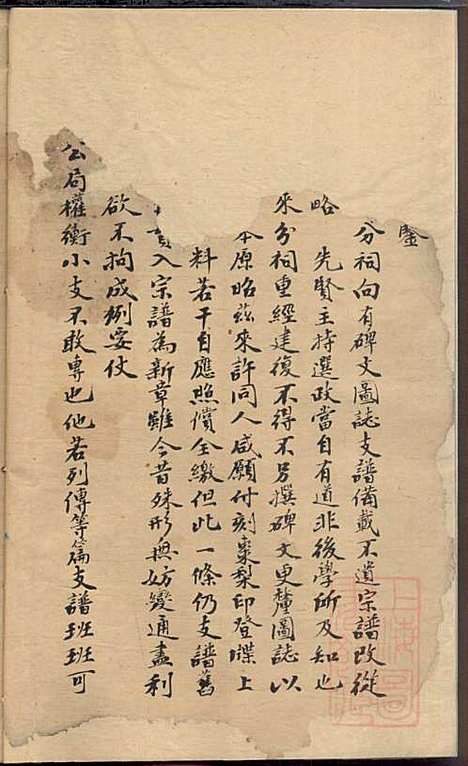 鑒
分祠向有碑文圖誌支譜備載不遺宗譜改從
略　先賢主持選政當自有道非後學所及知也
來分祠重經建復不得不另撰碑文更釐圖誌以
本原昭茲來許同人咸願付刻棗梨印登牒上
料若干自應照償全繳但此一條仍支譜舊
入宗譜為新章雖今昔殊形無妨變通盡利
欲不拘成例妥仗
公局權衡小支不敢專也他若列傳等篇支譜班班可